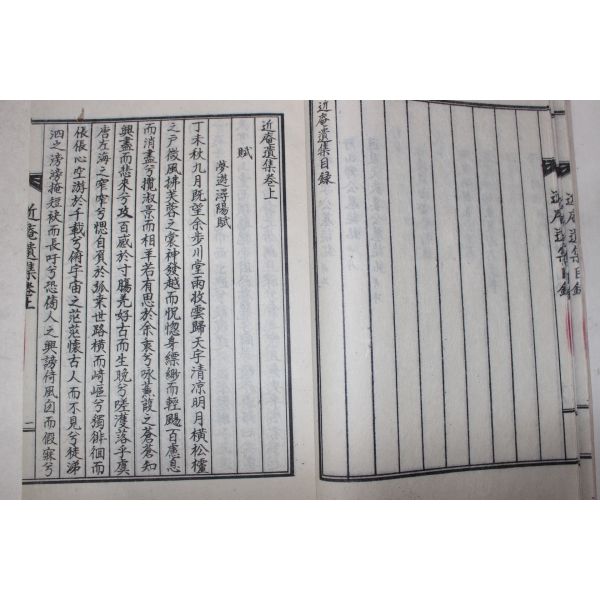 近庵遺集目錄
近庵遺集目錄
近庵遺集目錄
近庵遺集卷上
賦
夢遊潯陽賦
丁未秋九月旣望余步川堂雨收雲歸天宇清凉明月橫松檀
之戶微風拂芙蓉之裳神發越而怳惚身縹緲而輕颺百慮息
而消盡兮攬淑景而相羊若有思於余衷兮咏蒹葭之蒼蒼知
興盡而悲來兮攻百感於寸膓羌好古而生晚兮嗟濩落乎虞
唐左海之窄窄兮愢自須於孤桒世路橫而崎嶇兮獨徘徊而
倀倀心空遊於千載兮俯宇宙之茫茫懷古人而不見兮徒涕
泗之滂滂掩短袂而長吁兮恐傷人之興謗倚風囱而假寐兮
近庵遺集卷上
一